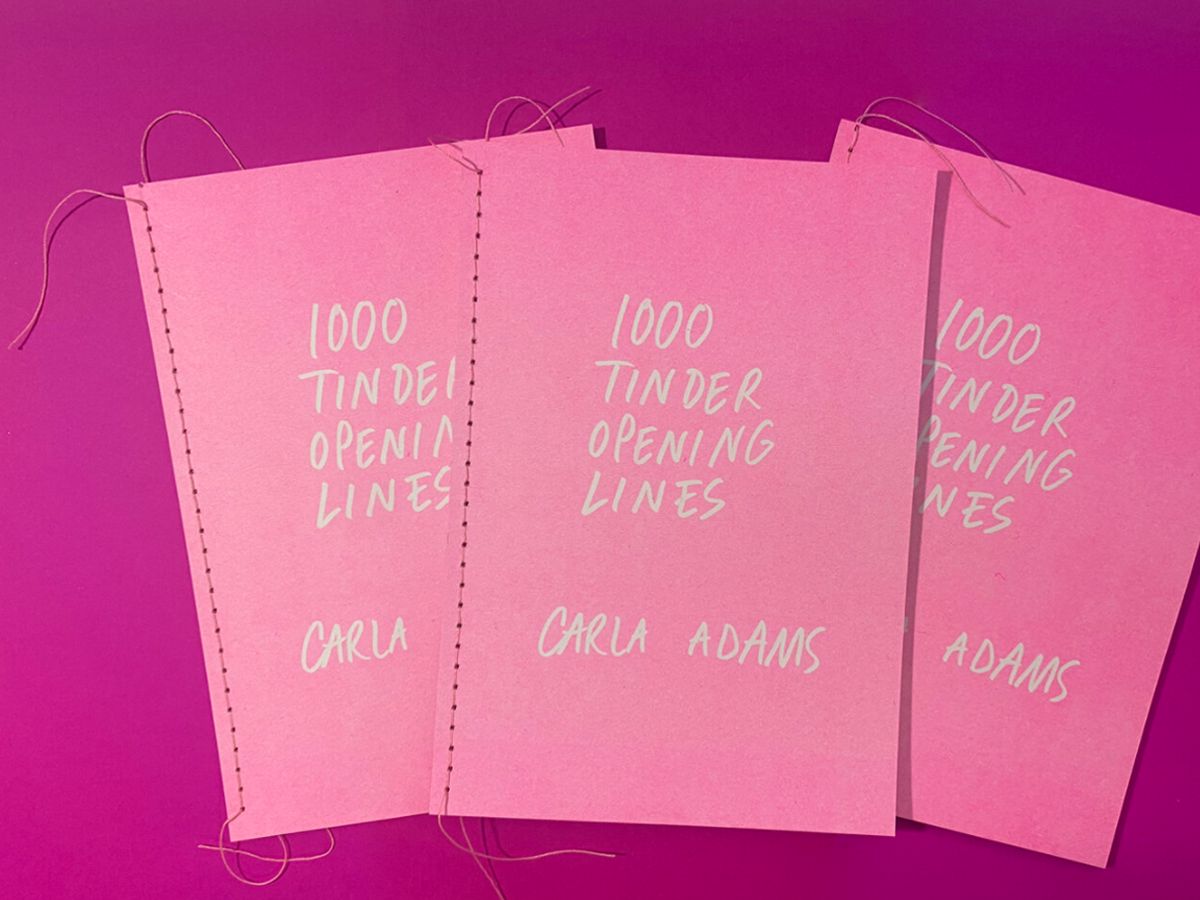 1000
TINDE
OPENI
LINES
CARLA
1000
TINDER
OPENING
LINES
CARLA ADAMS
1000
TINDER
PENING
NES
ADAMS